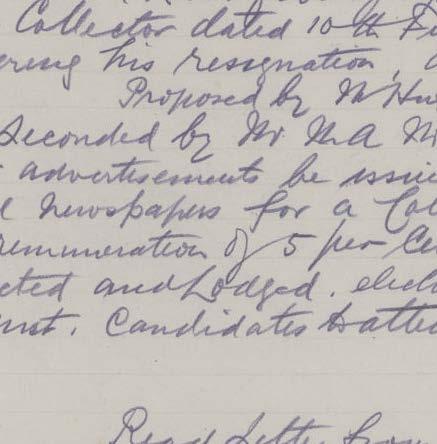 Collector dated 10th
ering his resignation,
Proposed by Mr
Seconded by Mr. McA
advertisements be issue
newspapers for a Col
remuneration of 5 per Ce
cted and Lodged. elect
inst. Candidates to atte
Read letter from